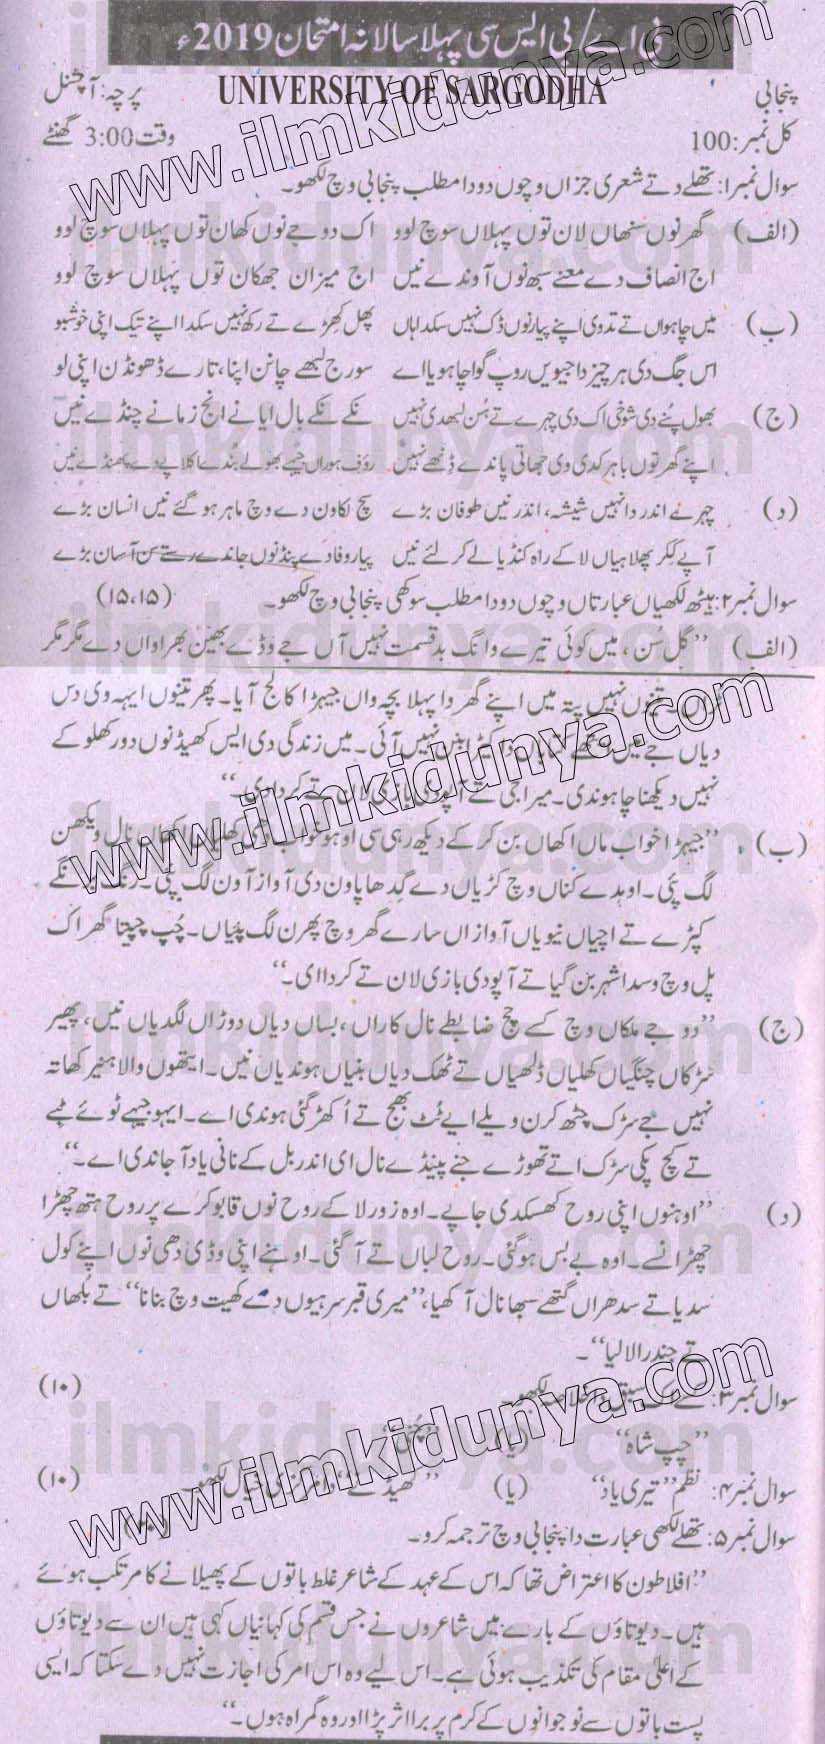 بی اے/بی ایس سی پہلا سالانہ امتحان 2019ء
پنجابی UNIVERSITY OF SARGODHA پرچہ: آپشنل
کل نمبر: 100 وقت 3:00 گھنٹے
سوال نمبر۱: تھلے دتے شعری جزاں وچوں دو دا مطلب پنجابی وچ لکھو۔
(الف) گھر نوں سنھاں لان توں پہلاں سوچ لوو اک دوجے نوں کھان توں پہلاں سوچ لوو
اج انصاف دے معنے سبھ نوں آوندے نیں اج میزان جھکان توں پہلاں سوچ لوو
(ب) میں چاہواں تے تد وی اپنے پیار نوں ڈک نہیں سکدا ہاں پھل کھڑے تے رکھ نہیں سکدا اپنے تیک اپنی خوشبو
اس جگ دی ہر چیز دا جیویں روپ گواچا ہویا اے سورج لبھے چانن اپنا، تارے ڈھونڈن اپنی لو
(ج) بھول پنے دی شوخی اک دی چہرے تے ہن لبھدی نہیں نکے نکے بال ایانے انج زمانے چنڈے نیں
اپنے گھر توں باہر کدی وی جھاتی پاندے ڈٹھے نہیں رؤف ہوراں جیہے بھولے بندے اکلاپے دے پھنڈے نیں
(د) چہرے اندر دا نہیں شیشہ، اندر نیں طوفان بڑے سچ لکاون دے وچ ماہر ہو گئے نیں انسان بڑے
آپے ککر پھلاہیاں لا کے راہ کنڈیالے کر لئے نیں پیار وفا دے پنڈ نوں جاندے رستے سن آسان بڑے
سوال نمبر۲: ہیٹھ لکھیاں عبارتاں وچوں دو دا مطلب سوکھی پنجابی وچ لکھو۔ (۱۵،۱۵)
(الف) ”گل سن، میں کوئی تیرے وانگ بدقسمت نہیں آں جے وڈے بھین بھراواں دے مگر مگر
ٹراں۔ تینوں نہیں پتہ میں اپنے گھر دا پہلا بچہ واں جیہڑا کالج آیا۔ پھر تینوں ایہہ وی دس
دیاں جے نہیں آئی۔ میں زندگی دی ایس کھیڈ نوں دور کھلو کے
نہیں دیکھنا چاہوندی۔ میرا جی تے آپو دی بازی لان تے کردا ای۔“
(ب) ”جیہڑا خواب ماں اکھاں بن کر کے دیکھ رہی سی اوہو خواب دیکھن
لگ پئی۔ اوہدے کناں وچ کڑیاں دے گدھا پاون دی آواز آون لگ پئی۔ رنگ برنگے
کپڑے تے اچیاں نیویاں آوازاں سارے گھر وچ پھرن لگ پئیاں۔ چپ چپیتا گھر اک
پل وچ وسدا شہر بن گیا تے آپو دی بازی لان تے کردا ای۔“
(ج) ”دوجے ملکاں وچ کسے حج ضابطے نال کاراں، بساں دیاں دوڑاں لگدیاں نیں، پھیر
سڑکاں چنگیاں کھلیاں ڈلھیاں تے ٹھک دیاں بنیاں ہوندیاں نیں۔ ایتھوں والا ہنیر کھاتہ
نہیں جے سڑک چٹھ کرن ویلے ایے ٹٹ بھج تے اکھڑ گئی ہوندی اے۔ ایہو جیہے ٹوئے ٹبے
تے کچ پکی سڑک اتے تھوڑے جنے پینڈے نال ای اندر ہل کے نانی یاد آ جاندی اے۔“
(د) ”اوہنوں اپنی روح کھسکدی جاپے۔ اوہ زور لا کے روح نوں قابو کرے پر روح ہتھ چھڑا
چھڑا نسے۔ اوہ بے بس ہو گئی۔ روح لباں تے آ گئی۔ اوہنے اپنی وڈی دھی نوں اپنے کول
سدیا تے سدھراں گتھے سبھا نال آکھیا، ”میری قبر سرہیوں دے کھیت وچ بنانا“ تے بلھاں
تے جندرا لا لیا“۔
سوال نمبر۳: لکھو۔ (۱۰)
”چپ شاہ“ (یا)
سوال نمبر۴: نظم ”تیری یاد“ (یا) دا مرکزی خیال لکھو۔ (۱۰)
سوال نمبر۵: تھلے لکھی عبارت دا پنجابی وچ ترجمہ کرو۔
”افلاطون کا اعتراض تھا کہ اس کے عہد کے شاعر غلط باتوں کے پھیلانے کا مرتکب ہوئے
ہیں۔ دیوتاؤں کے بارے میں شاعروں نے جس قسم کی کہانیاں کہی ہیں ان سے دیوتاؤں
کے اعلیٰ مقام کی تکذیب ہوئی ہے۔ اس لیے وہ اس امر کی اجازت نہیں دے سکتا کہ ایسی
پست باتوں سے نوجوانوں کے کرم پر برا اثر پڑا اور وہ گمراہ ہوں۔“
www.ilmkidunya.com
www.ilmkidunya.com
www.ilmkidunya.com